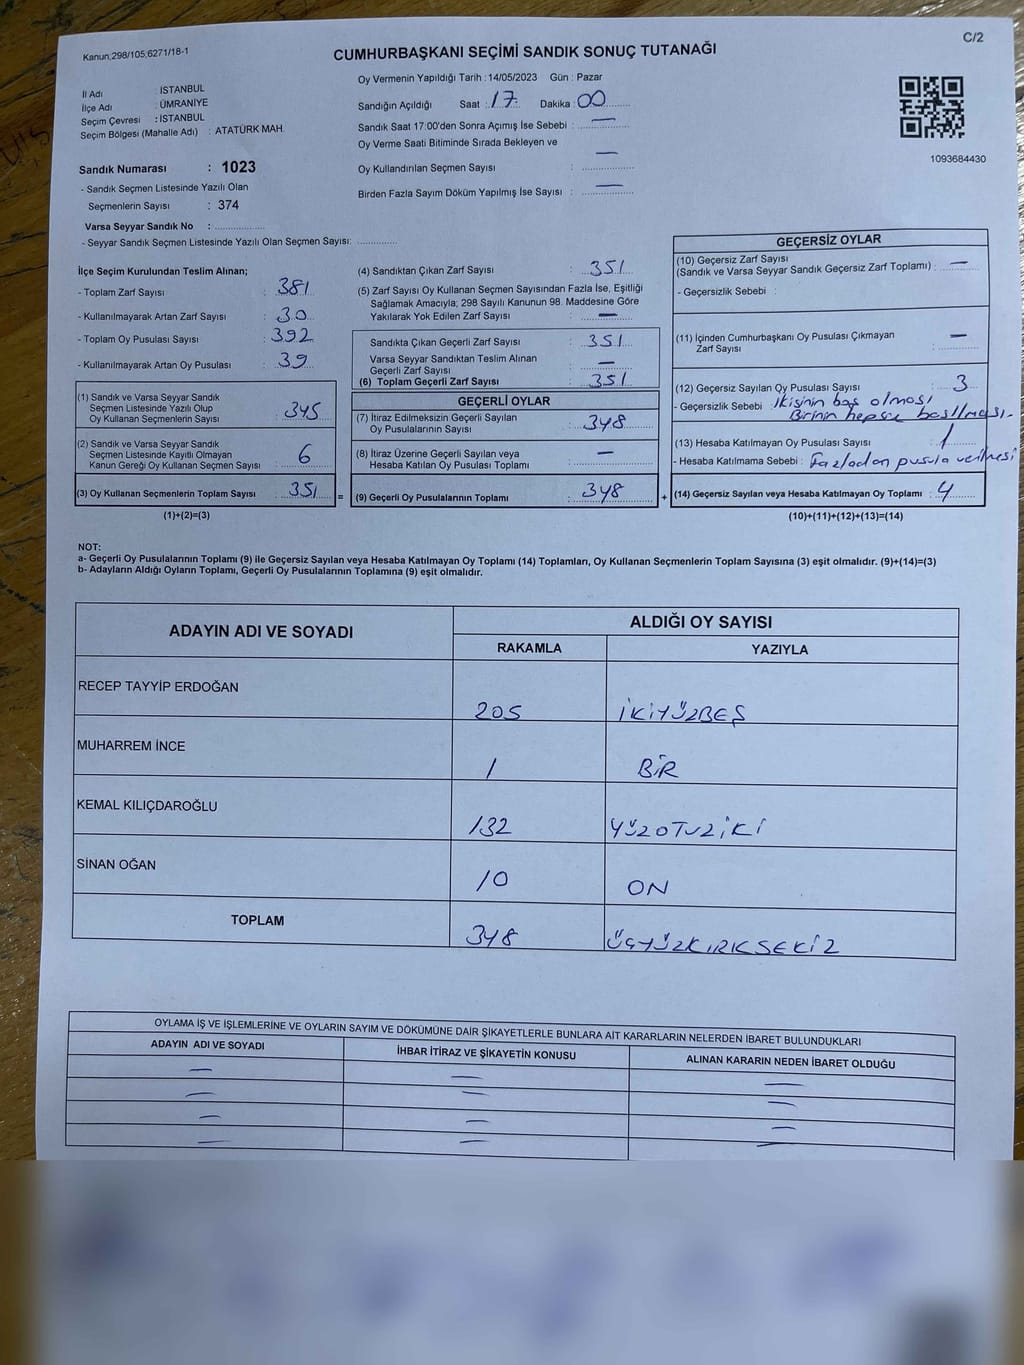 Kanun;298/105;6271/18-1
C/2
CUMHURBAŞKANI SEÇİMİ SANDIK SONUÇ TUTANAĞI
İl Adı : İSTANBUL
İlçe Adı : ÜMRANİYE
Seçim Çevresi : İSTANBUL
Seçim Bölgesi (Mahalle Adı) : ATATÜRK MAH.
Sandık Numarası : 1023
- Sandık Seçmen Listesinde Yazılı Olan
Seçmenlerin Sayısı : 374
Varsa Seyyar Sandık No :
- Seyyar Sandık Seçmen Listesinde Yazılı Olan Seçmen Sayısı:
Oy Vermenin Yapıldığı Tarih : 14/05/2023 Gün : Pazar
Sandığın Açıldığı Saat : 17 Dakika : 00
Sandık Saat 17:00'den Sonra Açımış İse Sebebi : —
Oy Verme Saati Bitiminde Sırada Bekleyen ve
Oy Kullandırılan Seçmen Sayısı : —
Birden Fazla Sayım Döküm Yapılmış İse Sayısı : —
1093684430
İlçe Seçim Kurulundan Teslim Alınan;
- Toplam Zarf Sayısı : 381
- Kullanılmayarak Artan Zarf Sayısı : 30
- Toplam Oy Pusulası Sayısı : 392
- Kullanılmayarak Artan Oy Pusulası : 39
(1) Sandık ve Varsa Seyyar Sandık
Seçmen Listesinde Yazılı Olup
Oy Kullanan Seçmenlerin Sayısı : 345
(2) Sandık ve Varsa Seyyar Sandık
Seçmen Listesinde Kayıtlı Olmayan
Kanun Gereği Oy Kullanan Seçmen Sayısı : 6
(3) Oy Kullanan Seçmenlerin Toplam Sayısı : 351 =
(1)+(2)=(3)
(4) Sandıktan Çıkan Zarf Sayısı : 351
(5) Zarf Sayısı Oy Kullanan Seçmen Sayısından Fazla İse, Eşitliği
Sağlamak Amacıyla; 298 Sayılı Kanunun 98. Maddesine Göre
Yakılarak Yok Edilen Zarf Sayısı : —
Sandıkta Çıkan Geçerli Zarf Sayısı : 351
Varsa Seyyar Sandıktan Teslim Alınan
Geçerli Zarf Sayısı : —
(6) Toplam Geçerli Zarf Sayısı : 351
GEÇERLİ OYLAR
(7) İtiraz Edilmeksizin Geçerli Sayılan
Oy Pusulalarının Sayısı : 348
(8) İtiraz Üzerine Geçerli Sayılan veya
Hesaba Katılan Oy Pusulası Toplamı : —
(9) Geçerli Oy Pusulalarının Toplamı : 348 +
GEÇERSİZ OYLAR
(10) Geçersiz Zarf Sayısı
(Sandık ve Varsa Seyyar Sandık Geçersiz Zarf Toplamı) : —
- Geçersizlik Sebebi :
(11) İçinden Cumhurbaşkanı Oy Pusulası Çıkmayan
Zarf Sayısı : —
(12) Geçersiz Sayılan Oy Pusulası Sayısı : 3
- Geçersizlik Sebebi : ikisinin boş olması
Birinin hepsıe basılması.
(13) Hesaba Katılmayan Oy Pusulası Sayısı : 1
- Hesaba Katılmama Sebebi : Fazladan pusula verilmesi
(14) Geçersiz Sayılan veya Hesaba Katılmayan Oy Toplamı : 4
(10)+(11)+(12)+(13)=(14)
NOT:
a- Geçerli Oy Pusulalarının Toplamı (9) ile Geçersiz Sayılan veya Hesaba Katılmayan Oy Toplamı (14) Toplamları, Oy Kullanan Seçmenlerin Toplam Sayısına (3) eşit olmalıdır. (9)+(14)=(3)
b- Adayların Aldığı Oyların Toplamı, Geçerli Oy Pusulalarının Toplamına (9) eşit olmalıdır.
ADAYIN ADI VE SOYADI
ALDIĞI OY SAYISI
RAKAMLA YAZIYLA
RECEP TAYYİP ERDOĞAN 205 İKİYÜZBEŞ
MUHARREM İNCE 1 BİR
KEMAL KILIÇDAROĞLU 132 YÜZOTUZİKİ
SİNAN OĞAN 10 ON
TOPLAM 348 ÜÇYÜZKIRKSEKİZ
OYLAMA İŞ VE İŞLEMLERİNE VE OYLARIN SAYIM VE DÖKÜMÜNE DAİR ŞİKAYETLERLE BUNLARA AİT KARARLARIN NELERDEN İBARET BULUNDUKLARI
ADAYIN ADI VE SOYADI İHBAR İTİRAZ VE ŞİKAYETİN KONUSU ALINAN KARARIN NEDEN İBARET OLDUĞU
— — —
— — —
— — —
— — —